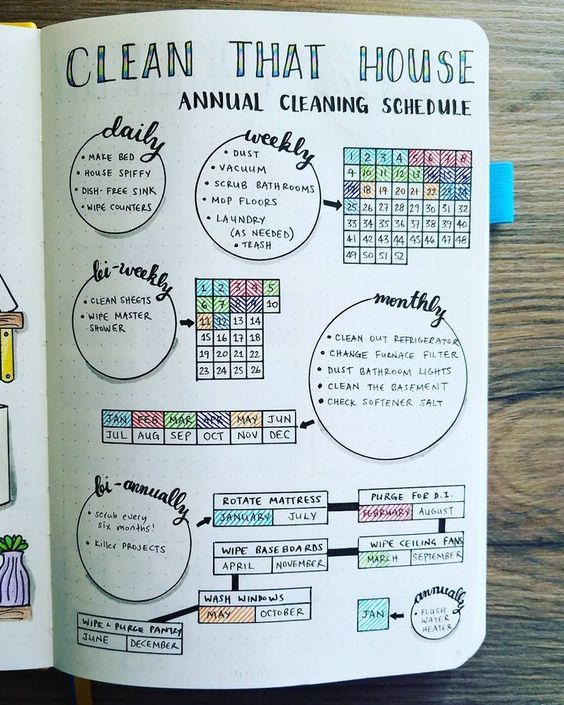 CLEAN THAT HOUSE
ANNUAL CLEANING SCHEDULE
daily
• MAKE BED
• HOUSE SPIFFY
• DISH-FREE SINK
• WIPE COUNTERS
weekly
• DUST
• VACUUM
• SCRUB BATHROOMS
• MOP FLOORS
• LAUNDRY
(AS NEEDED)
• TRASH
1 2 3 4 5 6 7 8
9 10 11 12 13 14 15 16
17 18 19 20 21 22 23 24
25 26 27 28 29 30 31 32
33 34 35 36 37 38 39 40
41 42 43 44 45 46 47 48
49 50 51 52
bi-weekly
• CLEAN SHEETS
• WIPE MASTER
SHOWER
1 2 3 4 5
6 7 8 9 10
11 12 13 14
15 16 17 18
19 20 21 22
23 24 25 26
monthly
• CLEAN OUT REFRIGERATOR
• CHANGE FURNACE FILTER
• DUST BATHROOM LIGHTS
• CLEAN THE BASEMENT
• CHECK SOFTENER SALT
JAN FEB MAR APR MAY JUN
JUL AUG SEP OCT NOV DEC
bi-annually
• scrub every
six months!
• Killer PROJECTS
ROTATE MATTRESS
JANUARY JULY
PURGE FOR D.I.
FEBRUARY AUGUST
WIPE CEILING FANS
MARCH SEPTEMBER
WIPE BASEBOARDS
APRIL NOVEMBER
WASH WINDOWS
MAY OCTOBER
WIPE & PURGE PANTRY
JUNE DECEMBER
annually
JAN
• FLUSH
WATER
HEATER